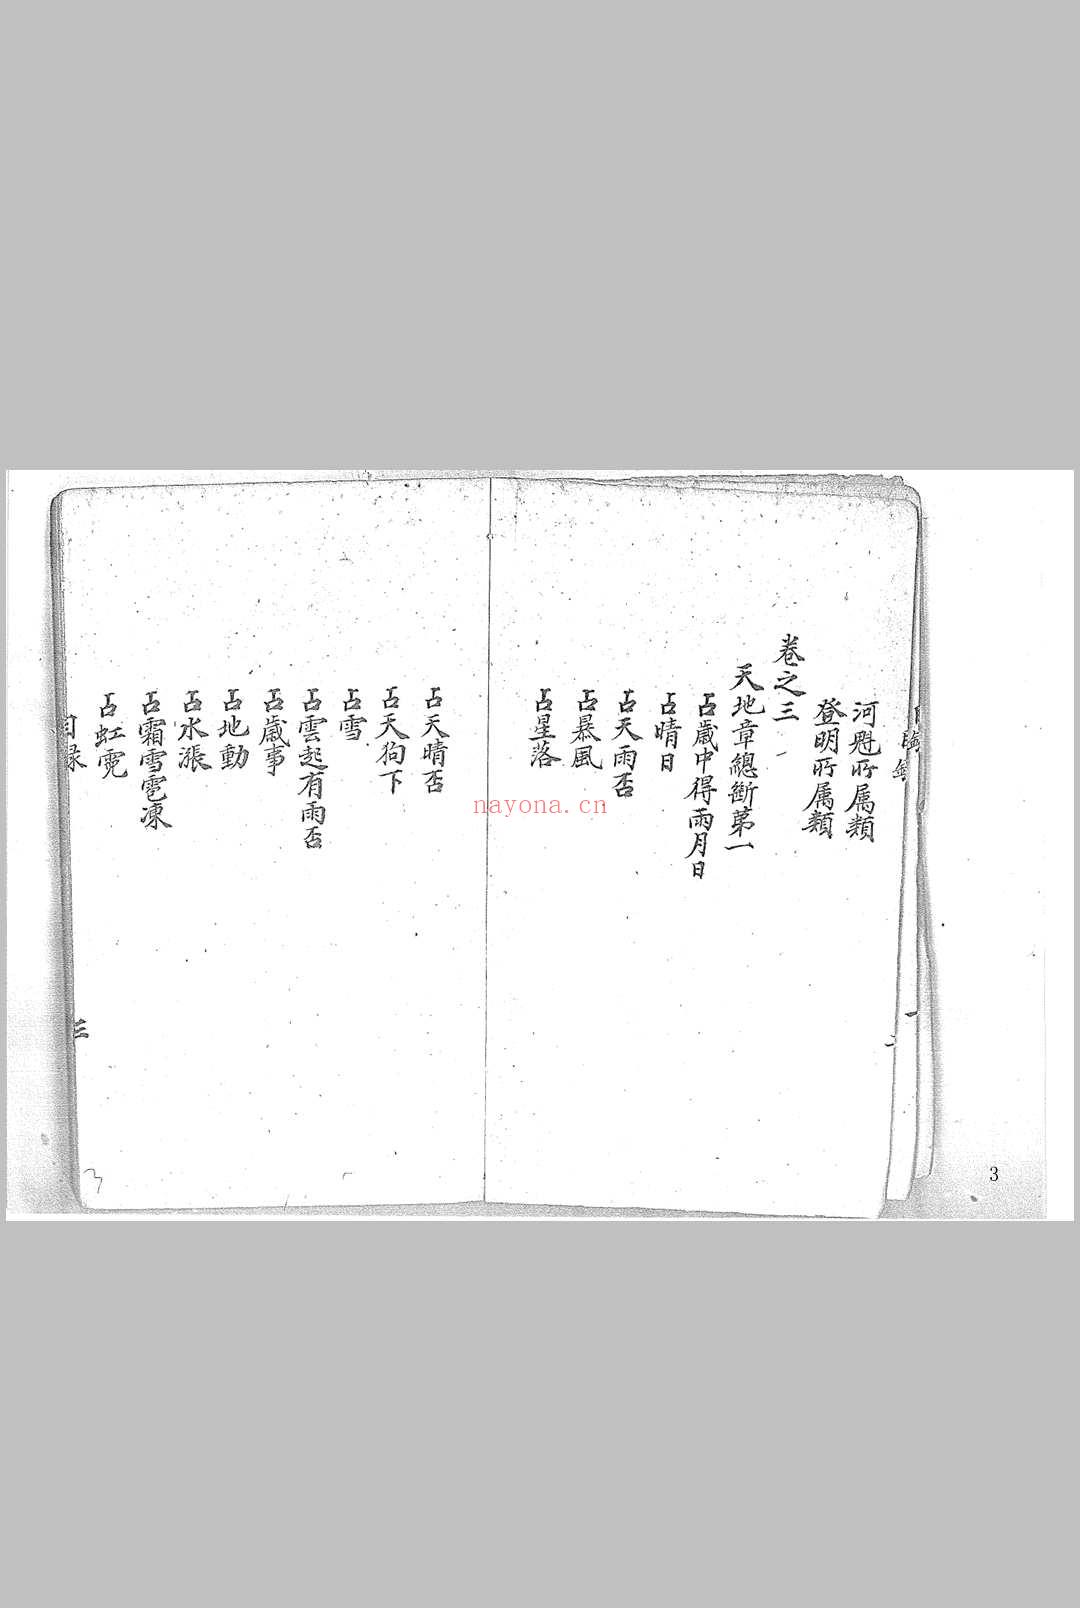 河魁所属類
登明所属類
卷之三
天地章總斷第一
占歲中得雨月日
占晴日
占天雨否
占暴風
占星落
占天晴否
占天狗下
占雪
占雲起有雨否
占歲事
占地動
占水漲
占霜雪雹凍
占虹霓
目録
三
3
3
nayona.cn